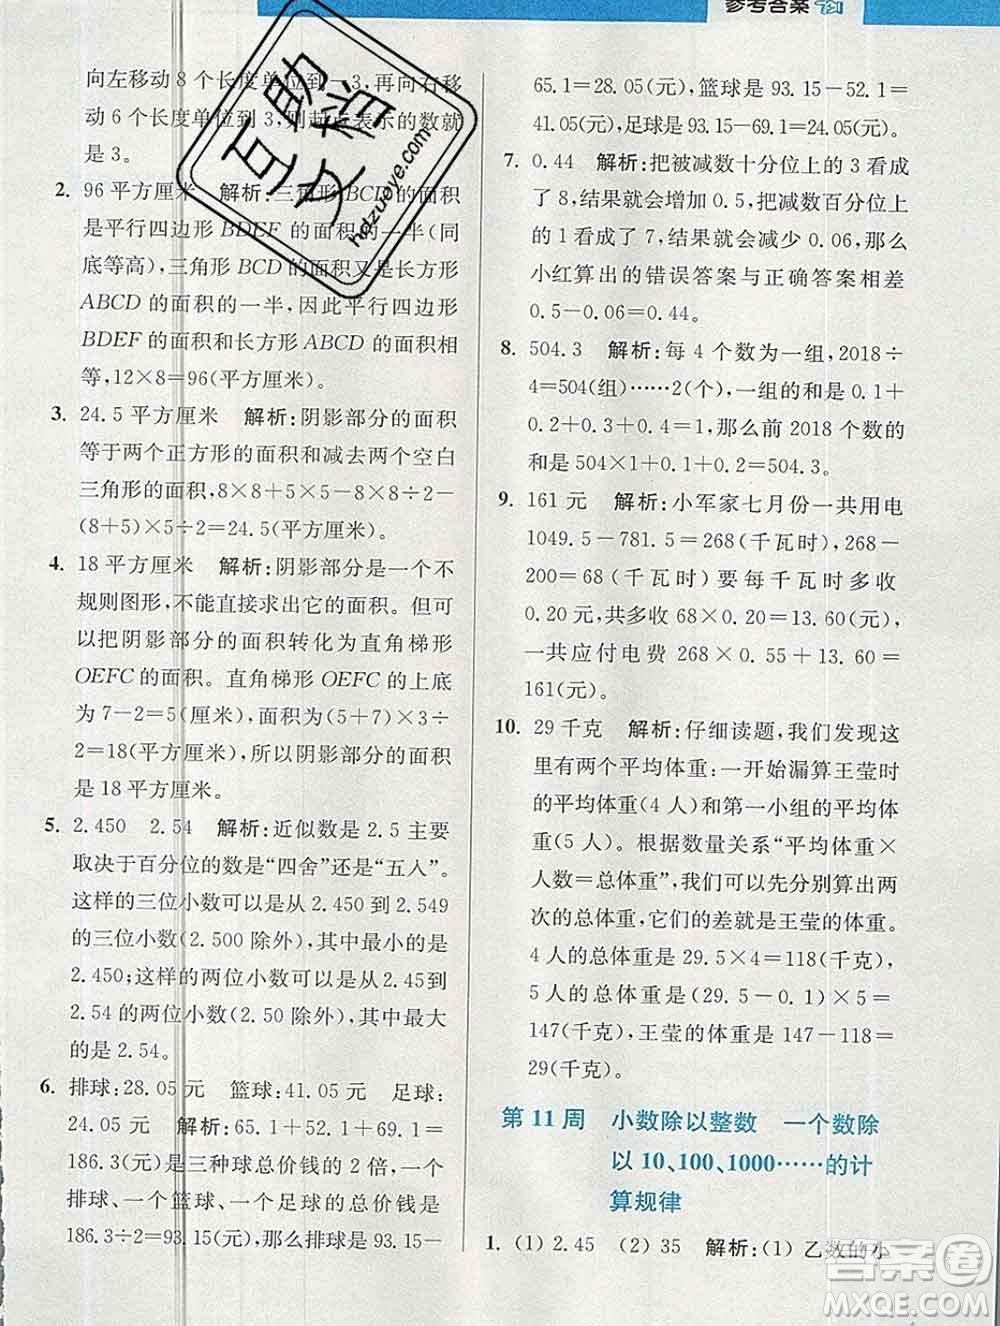 参考答案
向左移动 8 个长度单位到 -3,再向右移
动 6 个长度单位到 3,则起点表示的数就
是 3。
2. 96 平方厘米 解析:三角形 BCD 的面积
是平行四边形 BDEF 的面积的一半(同
底等高),三角形 BCD 的面积又是长方形
ABCD 的面积的一半,因此平行四边形
BDEF 的面积和长方形 ABCD 的面积相
等,12×8=96(平方厘米)。
3. 24.5 平方厘米 解析:阴影部分的面积
等于两个正方形的面积和减去两个空白
三角形的面积,8×8+5×5-8×8÷2-
(8+5)×5÷2=24.5(平方厘米)。
4. 18 平方厘米 解析:阴影部分是一个不
规则图形,不能直接求出它的面积。但可
以把阴影部分的面积转化为直角梯形
OEFC 的面积。直角梯形 OEFC 的上底
为 7-2=5(厘米),面积为(5+7)×3÷
2=18(平方厘米),所以阴影部分的面积
是 18 平方厘米。
5. 2.450 2.54 解析:近似数是 2.5 主要
取决于百分位的数是“四舍”还是“五入”。
这样的三位小数可以从 2.450 到 2.549
的三位小数(2.500 除外),其中最小的是
2.450;这样的两位小数可以从 2.45 到
2.54 的两位小数(2.50 除外),其中最大
的是 2.54。
6. 排球:28.05 元 篮球:41.05 元 足球:
24.05 元 解析:65.1+52.1+69.1=
186.3(元)是三种球总价钱的 2 倍,一个
排球、一个篮球、一个足球的总价钱是
186.3÷2=93.15(元),那么排球是 93.15-
65.1=28.05(元),篮球是 93.15-52.1=
41.05(元),足球是 93.15-69.1=24.05(元)。
7. 0.44 解析:把被减数十分位上的 3 看成
了 8,差会增加 0.5,把减数百分位上的
1 看成了 7,差就会减少 0.06,那么
小红算出的错误答案与正确答案相差
0.5-0.06=0.44。
8. 504.3 解析:每 4 个数为一组,2018÷
4=504(组)……2(个),一组的和是 0.1+
0.2+0.3+0.4=1,那么前 2018 个数的
和是 504×1+0.1+0.2=504.3。
9. 161 元 解析:小军家七月份一共用电
1049.5-781.5=268(千瓦时),268-
200=68(千瓦时)要每千瓦时多收
0.20 元,共多收 68×0.20=13.60(元),
一共应付电费 268×0.55+13.60=
161(元)。
10. 29 千克 解析:仔细读题,我们发现这
里有两个平均体重:一开始漏算王莹时
的平均体重(4 人)和第一小组的平均体重
(5 人)。根据数量关系“平均体重×
人数=总体重”,我们可以先分别算出两
次的总体重,它们的差就是王莹的体重。
4 人的总体重是 29.5×4=118(千克),
5 人的总体重是(29.5-0.1)×5=
147(千克),王莹的体重是 147-118=
29(千克)。
第 11 周 小数除以整数 一个数除
以 10、100、1000……的计
算规律
1. (1) 2.45 (2) 35 解析:(1) 乙数的小
hdzuoye.com
答案圈
MXQE.COM